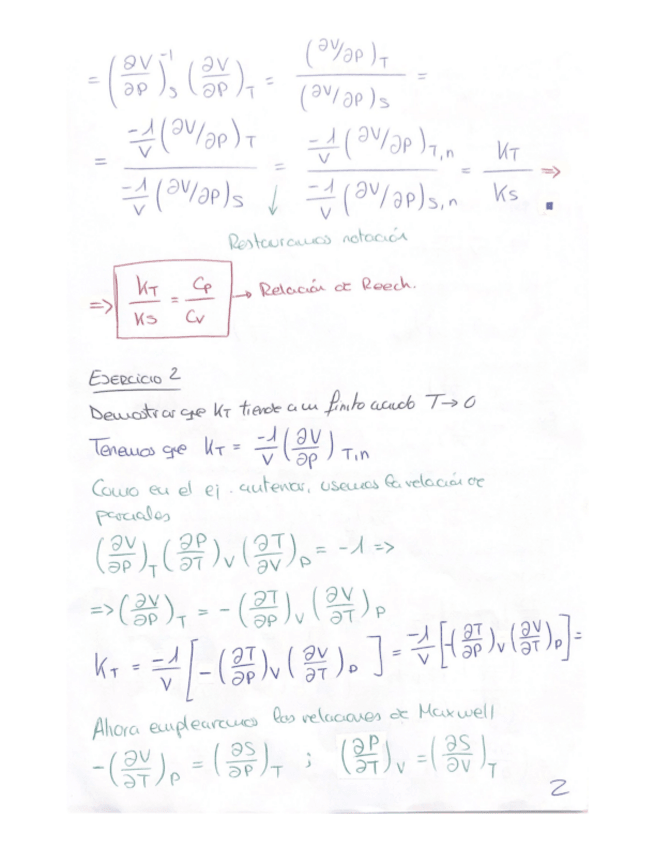 = (∂V/∂P)_S^-1 (∂V/∂P)_T = (∂V/∂P)_T / (∂V/∂P)_S =
= -1/V (∂V/∂P)_T / -1/V (∂V/∂P)_S = -1/V (∂V/∂P)_T,n / -1/V (∂V/∂P)_S,n = K_T / K_S =>
↓
Restauramos notación
=> K_T / K_S = C_P / C_V → Relación de Reech.
EJERCICIO 2
Demostrar que K_T tiende a un finito cuando T → 0
Tenemos que K_T = -1/V (∂V/∂P)_T,n
Como en el ej. anterior, usemos la relación de
parciales
(∂V/∂P)_T (∂P/∂T)_V (∂T/∂V)_P = -1 =>
=> (∂V/∂P)_T = - (∂T/∂P)_V (∂V/∂T)_P
K_T = -1/V [ - (∂T/∂P)_V (∂V/∂T)_P ] = -1/V [ -(∂T/∂P)_V (∂V/∂T)_P ] =
Ahora emplearemos las relaciones de Maxwell
- (∂V/∂T)_P = (∂S/∂P)_T ; (∂P/∂T)_V = (∂S/∂V)_T
2